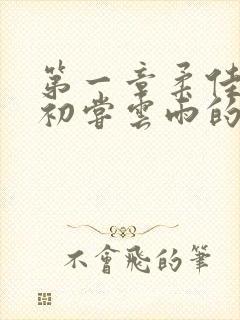 第一章柔佳
初嘗雲雨的
不會飛的筆